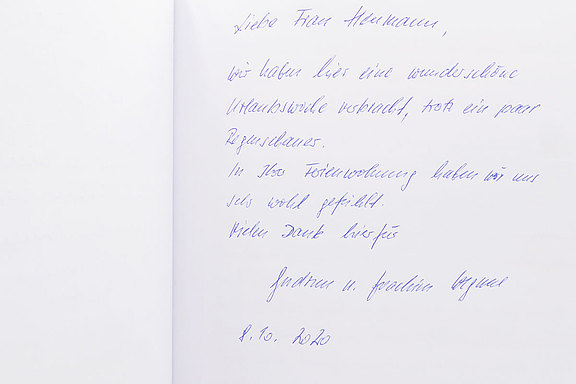 Liebe Frau Herrmann,
wir haben hier eine wunderschöne
Urlaubswoche verbracht, trotz ein paar
Regenschauer.
In Ihrer Ferienwohnung haben wir uns
sehr wohl gefühlt.
Vielen Dank hierfür
Gudrun u. Joachim
8.10. 2020